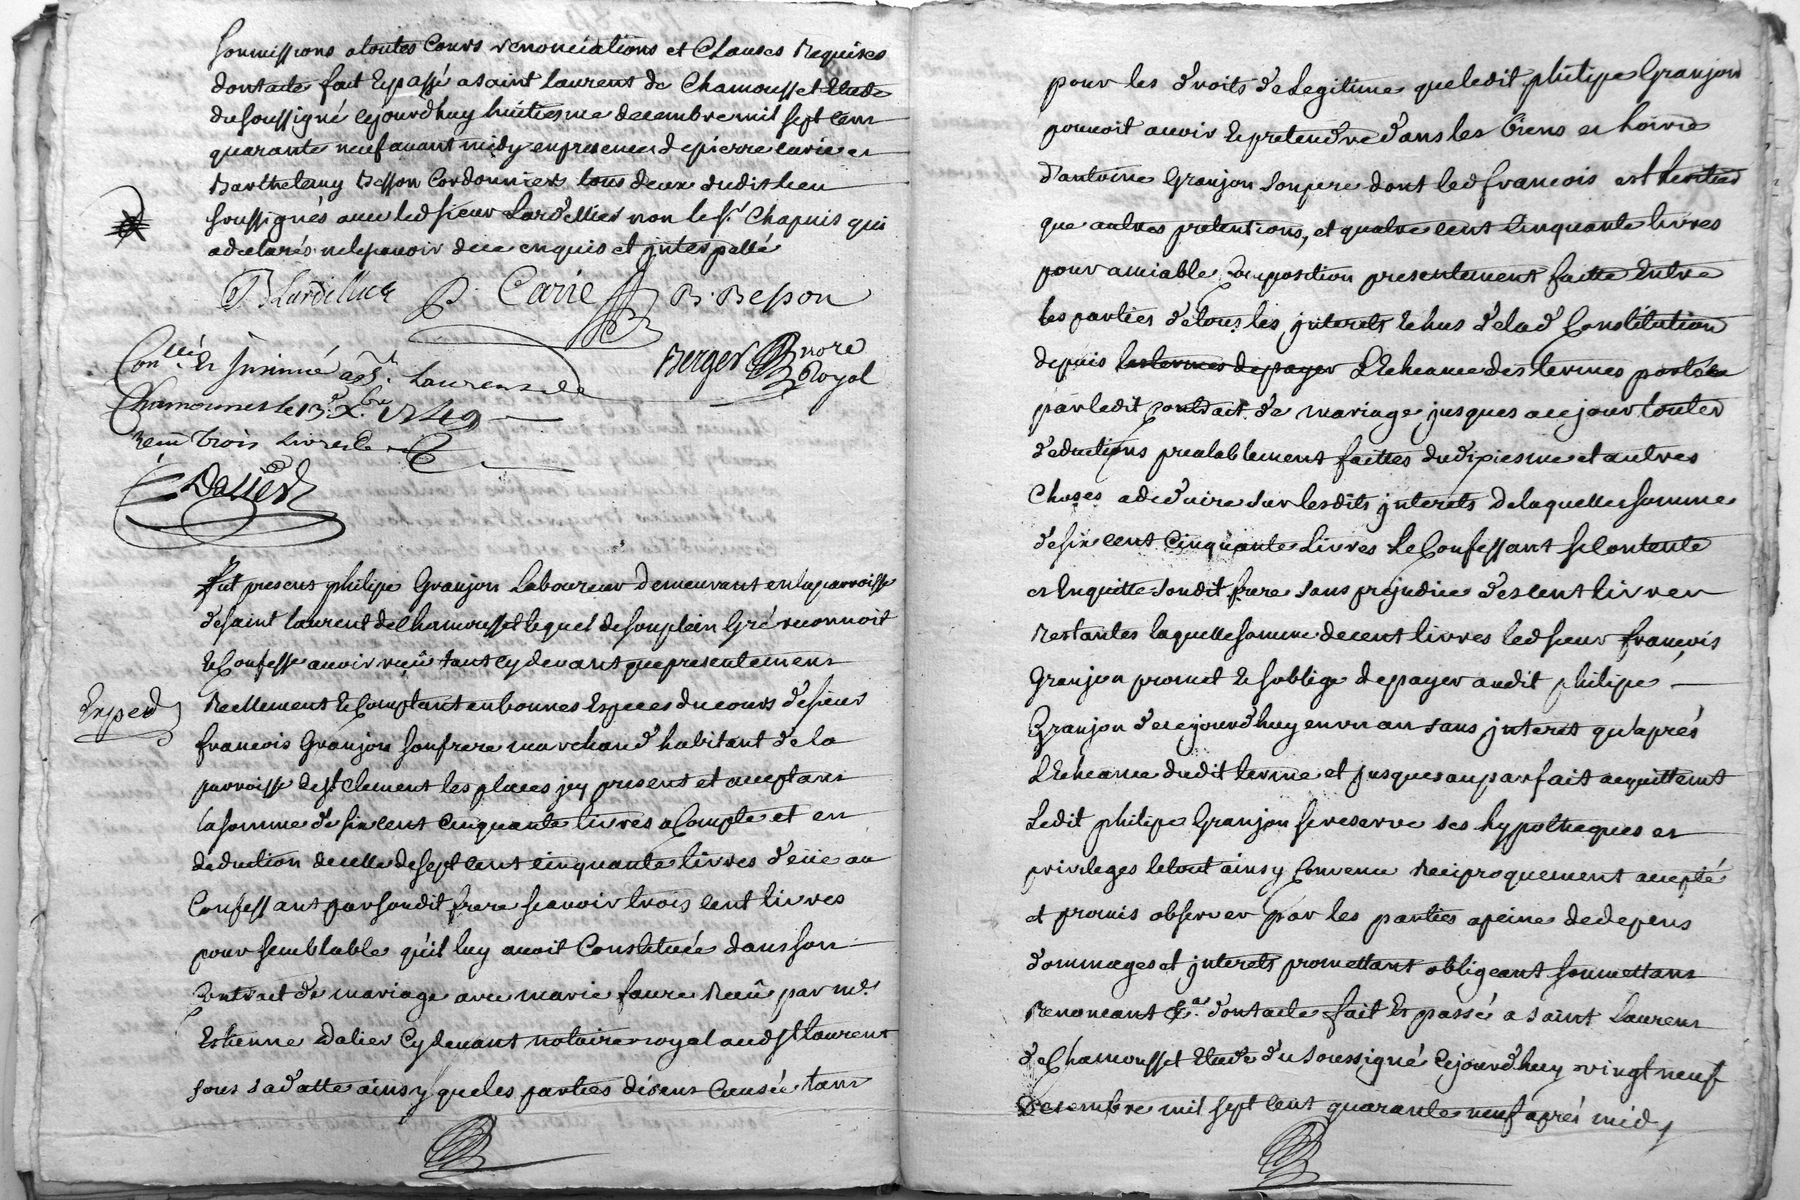 soumissions atoutes Cours renonciations et Clauses Requises
dontacte fait Et passé a saint Laurent de Chamousset Etude
du soussigné cejourdhuy huitiesme decembre mil sept cent
quarante neuf avant midy en presence de pierre carie et
Barthelemy Besson Cordonnier tous deux dudit lieu
soussignés avec led sieur Lardellier non le sr. Chapuis qui
a declarés ne le pouvoir de ce enquis et interpellé
Lardellier P. Carie B. Besson
Berger nore
Royal
Conllé Et Insinué a St. Laurens de
Chamousset le 13e Xbre 1749
Receu trois livres
Dalier
Fut present philipe Granjon Laboureur demeurant en la parroisse
de saint Laurent de Chamousset lequel de son plein Gré reconnoit
Et Confesse avoir reçeû tant cy devant que presentement
Reellement Et Comptant en bonnes Especes du cours de sieur
Exped
francois Granjon son frere marchand habitant de la
parroisse de st. Clement les places icy present et acceptant
la somme de six cent cinquante livres a Compte et en
deduction de celle de sept cent cinquante livres deüe au
Confessant par son dit frere scavoir trois cent livres
pour semblable qu'il luy avoit Constituée dans son
Contract de mariage avec marie faure Receû par me.
Estienne Dalier Cy devant notaire royal aud St Laurent
sous sa datte ainsy que les parties disent Causée tant
pour les droits de Legitime que ledit philipe Granjon
pouvoit avoir Et pretendre dans les biens et hoirie
d'antoine Granjon son pere dont led francois est heritier
que autres pretentions, et quatre cent Cinquante livres
pour amiable Composition presentement faitte Entre
les parties de tous les interets Echus de lad Constitution
depuis les termes de payer L'Echeance des termes portés
par ledit Contract de mariage jusques a ce jour toutes
deductions prealablement faittes du dixiesme et autres
Choses a deduire sur lesdits interets de laquelle somme
de six cent Cinquante Livres Le Confessant se Contente
et En quitte son dit frere sans prejudice des cent livres
Restantes laquelle somme de cent livres led sieur françois
Granjon promet Et soblige de payer audit philipe
Granjon de cejourdhuy en un an sans interet qu'aprés
L'Echeance dudit terme et jusques au parfait acquittement
Ledit philipe Granjon se reserve ses hypotheques et
privileges le tout ainsy Convenu Reciproquement accepté
et promis observer par les parties a peine de depens
dommages et interets promettant obligeant soumettant
Renonceant &a. dont acte fait Et passé a saint Laurent
de Chamousset Etude du soussigné Cejourdhuy vingt neuf
Decembre mil sept cent quarante neuf aprés midy